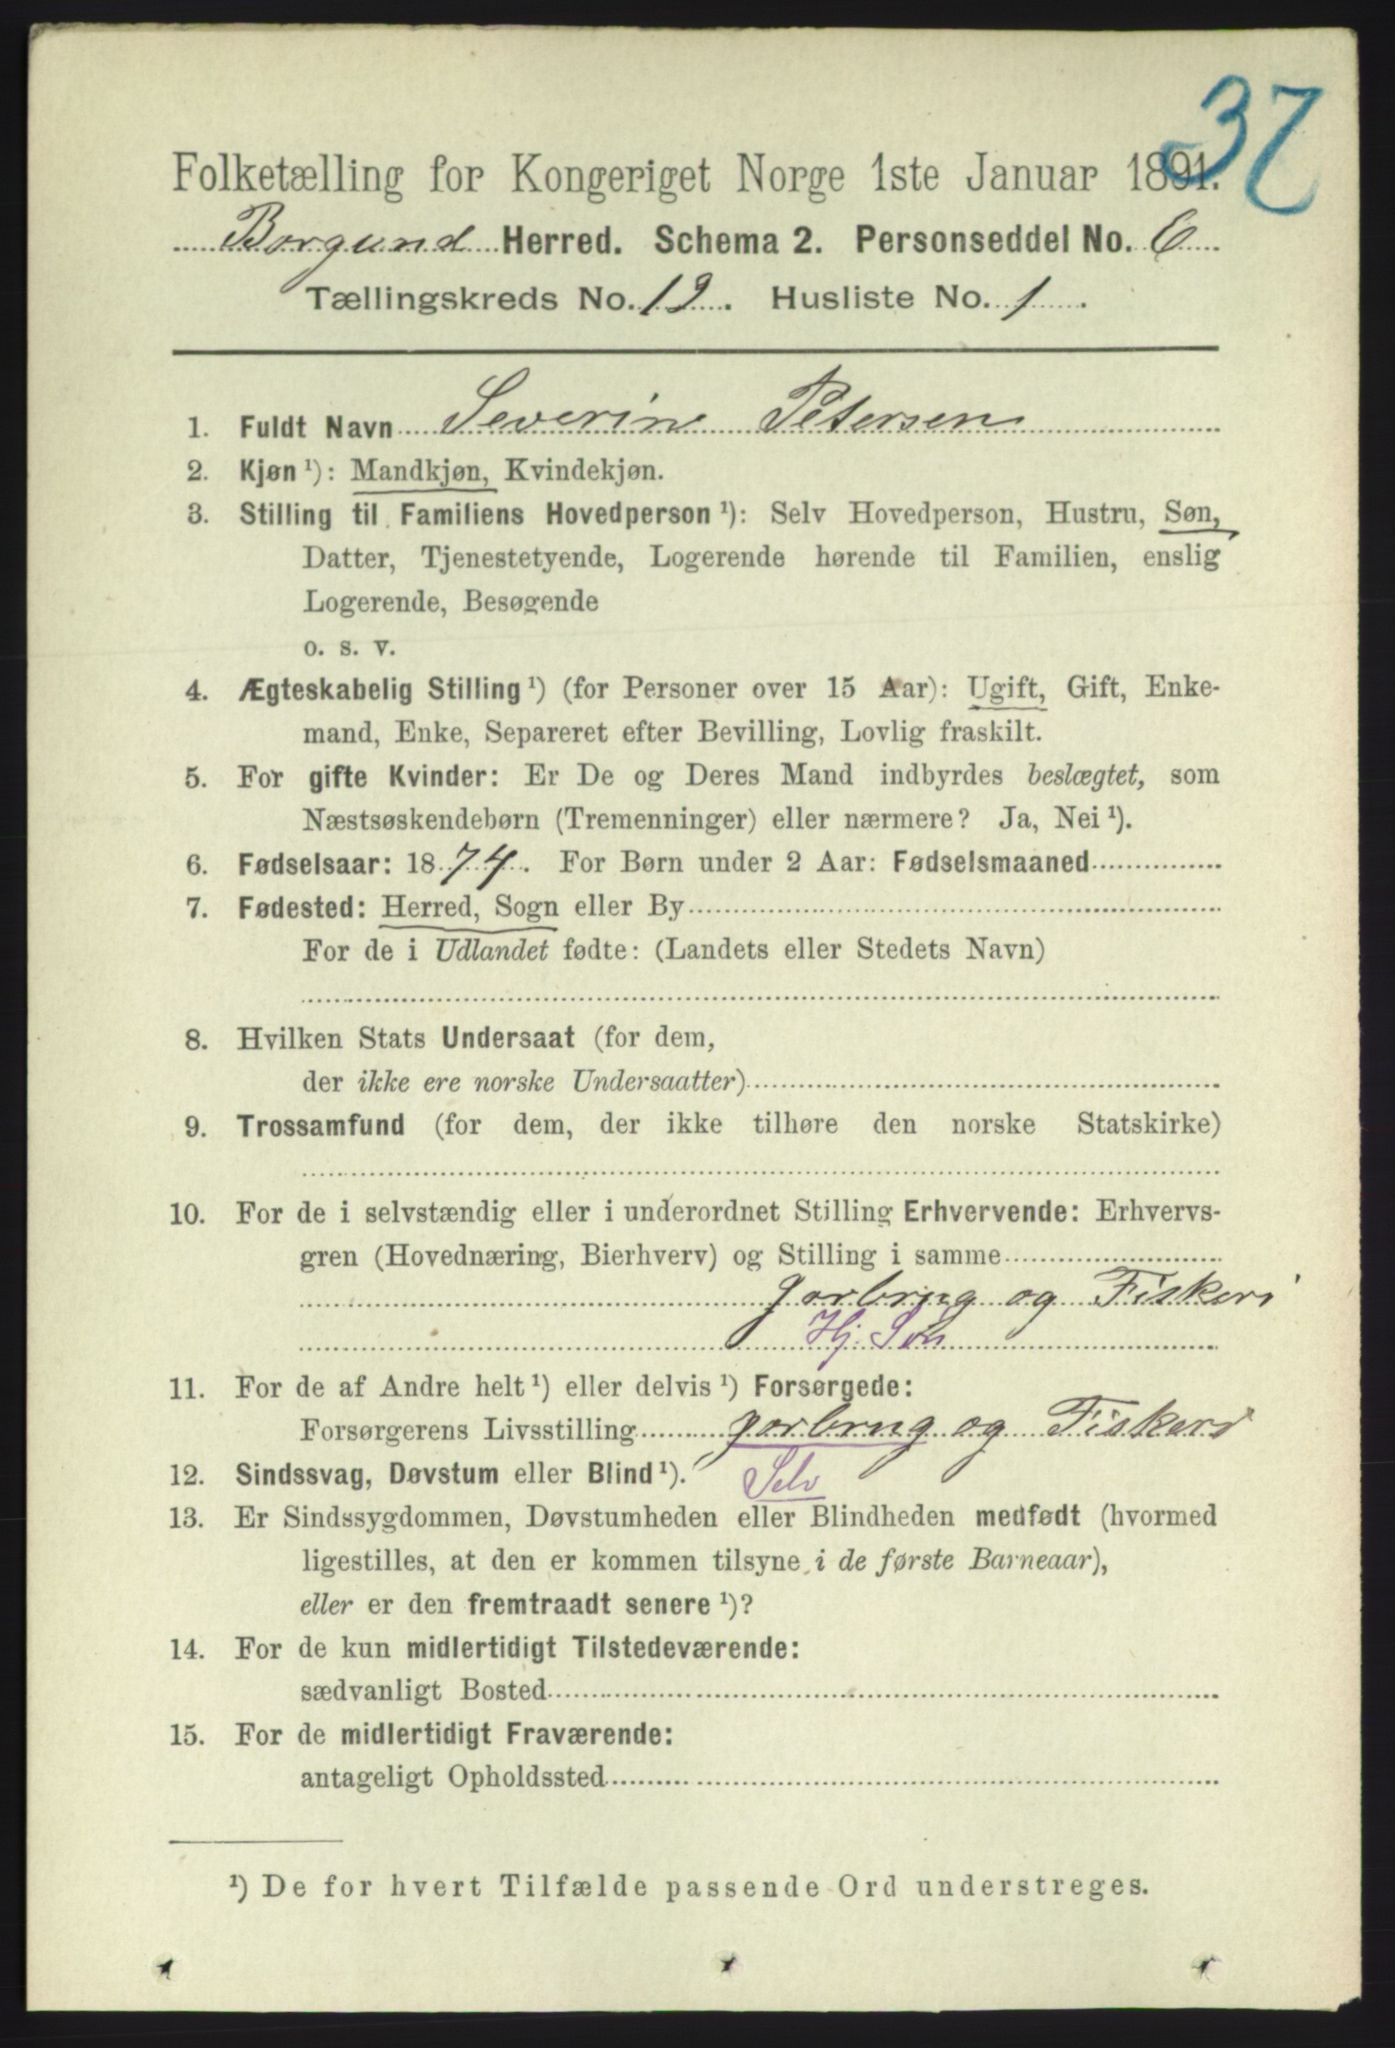 37
Folketælling for Kongeriget Norge 1ste Januar 1891.
Borgund Herred. Schema 2. Personseddel No. 6
Tællingskreds No. 12. Husliste No. 1.
1. Fuldt Navn Severin Petersen
2. Kjøn ¹): Mandkjøn, Kvindekjøn.
3. Stilling til Familiens Hovedperson ¹): Selv Hovedperson, Hustru, Søn,
Datter, Tjenestetyende, Logerende hørende til Familien, enslig
Logerende, Besøgende
o. s. v.
4. Ægteskabelig Stilling ¹) (for Personer over 15 Aar): Ugift, Gift, Enke-
mand, Enke, Separeret efter Bevilling, Lovlig fraskilt.
5. For gifte Kvinder: Er De og Deres Mand indbyrdes beslægtet, som
Næstsøskendebørn (Tremenninger) eller nærmere? Ja, Nei ¹).
6. Fødselsaar: 1874. For Børn under 2 Aar: Fødselsmaaned
7. Fødested: Herred, Sogn eller By
For de i Udlandet fødte: (Landets eller Stedets Navn)
8. Hvilken Stats Undersaat (for dem,
der ikke ere norske Undersaatter)
9. Trossamfund (for dem, der ikke tilhøre den norske Statskirke)
10. For de i selvstændig eller i underordnet Stilling Erhvervende: Erhvervs-
gren (Hovednæring, Bierhverv) og Stilling i samme
Jorbrug og Fiskeri
Hj. Søn
11. For de af Andre helt ¹) eller delvis ¹) Forsørgede:
Forsørgerens Livsstilling jorbrug og Fiskeri
12. Sindssvag, Døvstum eller Blind ¹). Selv
13. Er Sindssygdommen, Døvstumheden eller Blindheden medfødt (hvormed
ligestilles, at den er kommen tilsyne i de første Barneaar),
eller er den fremtraadt senere ¹)?
14. For de kun midlertidigt Tilstedeværende:
sædvanligt Bosted
15. For de midlertidigt Fraværende:
antageligt Opholdssted
¹) De for hvert Tilfælde passende Ord understreges.